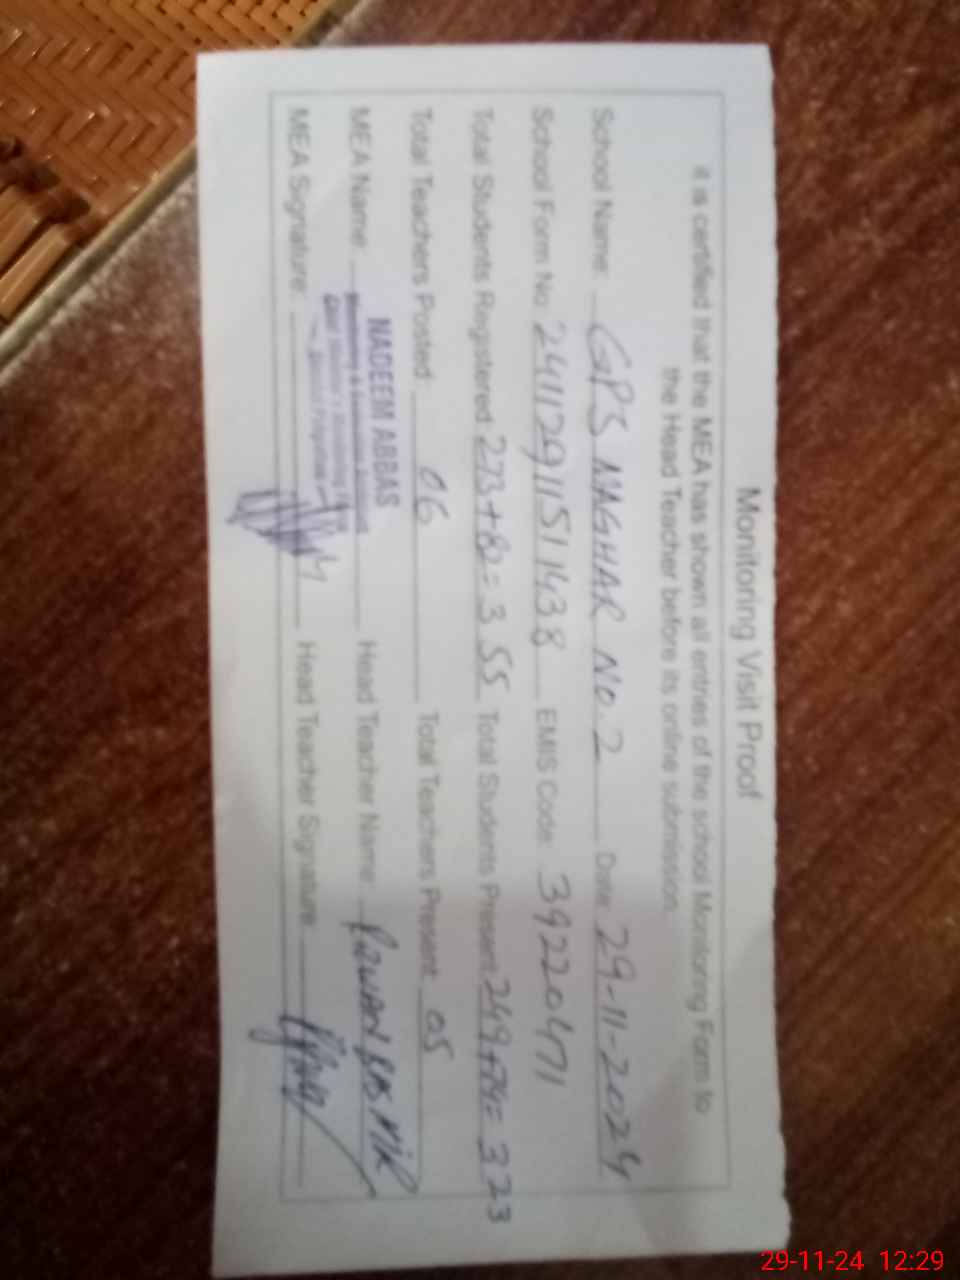 Monitoring Visit Proof
it is certified that the MEA has shown all entries of the school Monitoring Form to
the Head Teacher before its online submission.
School Name: GPS NAGHAR No. 2 Date: 29-11-2024
School Form No. 24112911511438 EMIS Code: 39220471
Total Students Registered 273+82=355 Total Students Present 249+74=323
Total Teachers Posted: 06 Total Teachers Present 05
MEA Name: NADEEM ABBAS Head Teacher Name:
MEA Signature: Head Teacher Signature
29-11-24 12:29